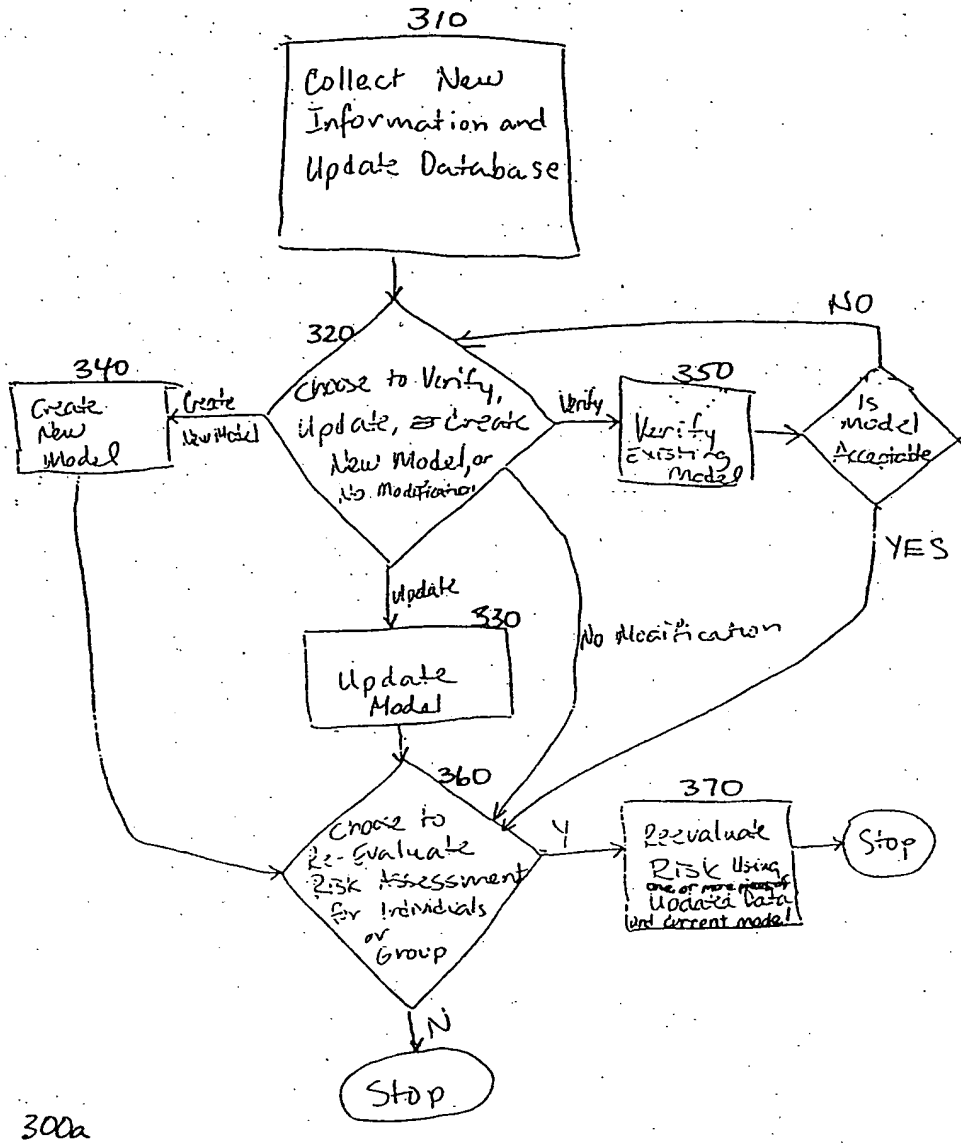 310
Collect New
Information and
Update Database
NO
320
340
350
Choose to Verify,
Update, or Create
New Model, or
No Modification
Create
New
Model
Create
New Model
Verify
Verify
Existing
Model
Is
Model
Acceptable
YES
Update
330
Update
Model
No Modification
360
Choose to
Re-Evaluate
Risk Assessment
for Individuals
or
Group
Y
370
Reevaluate
Risk Using
one or more pieces of
Updated Data
and current model
Stop
N
Stop
300a